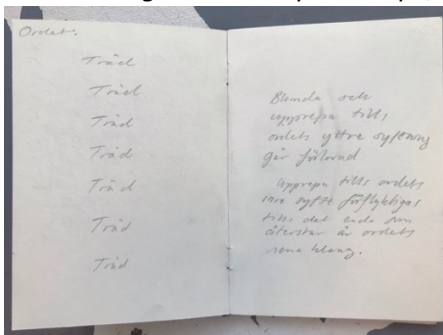 Ordet:
Träd
Träd
Träd
Träd
Träd
Träd
Träd
Blunda och
upprepa tills
ordets yttre syftning
går förlorad
Upprepa tills ordets
inre syfte förflyktigas
tills det enda som
återstår är ordets
rena klang.